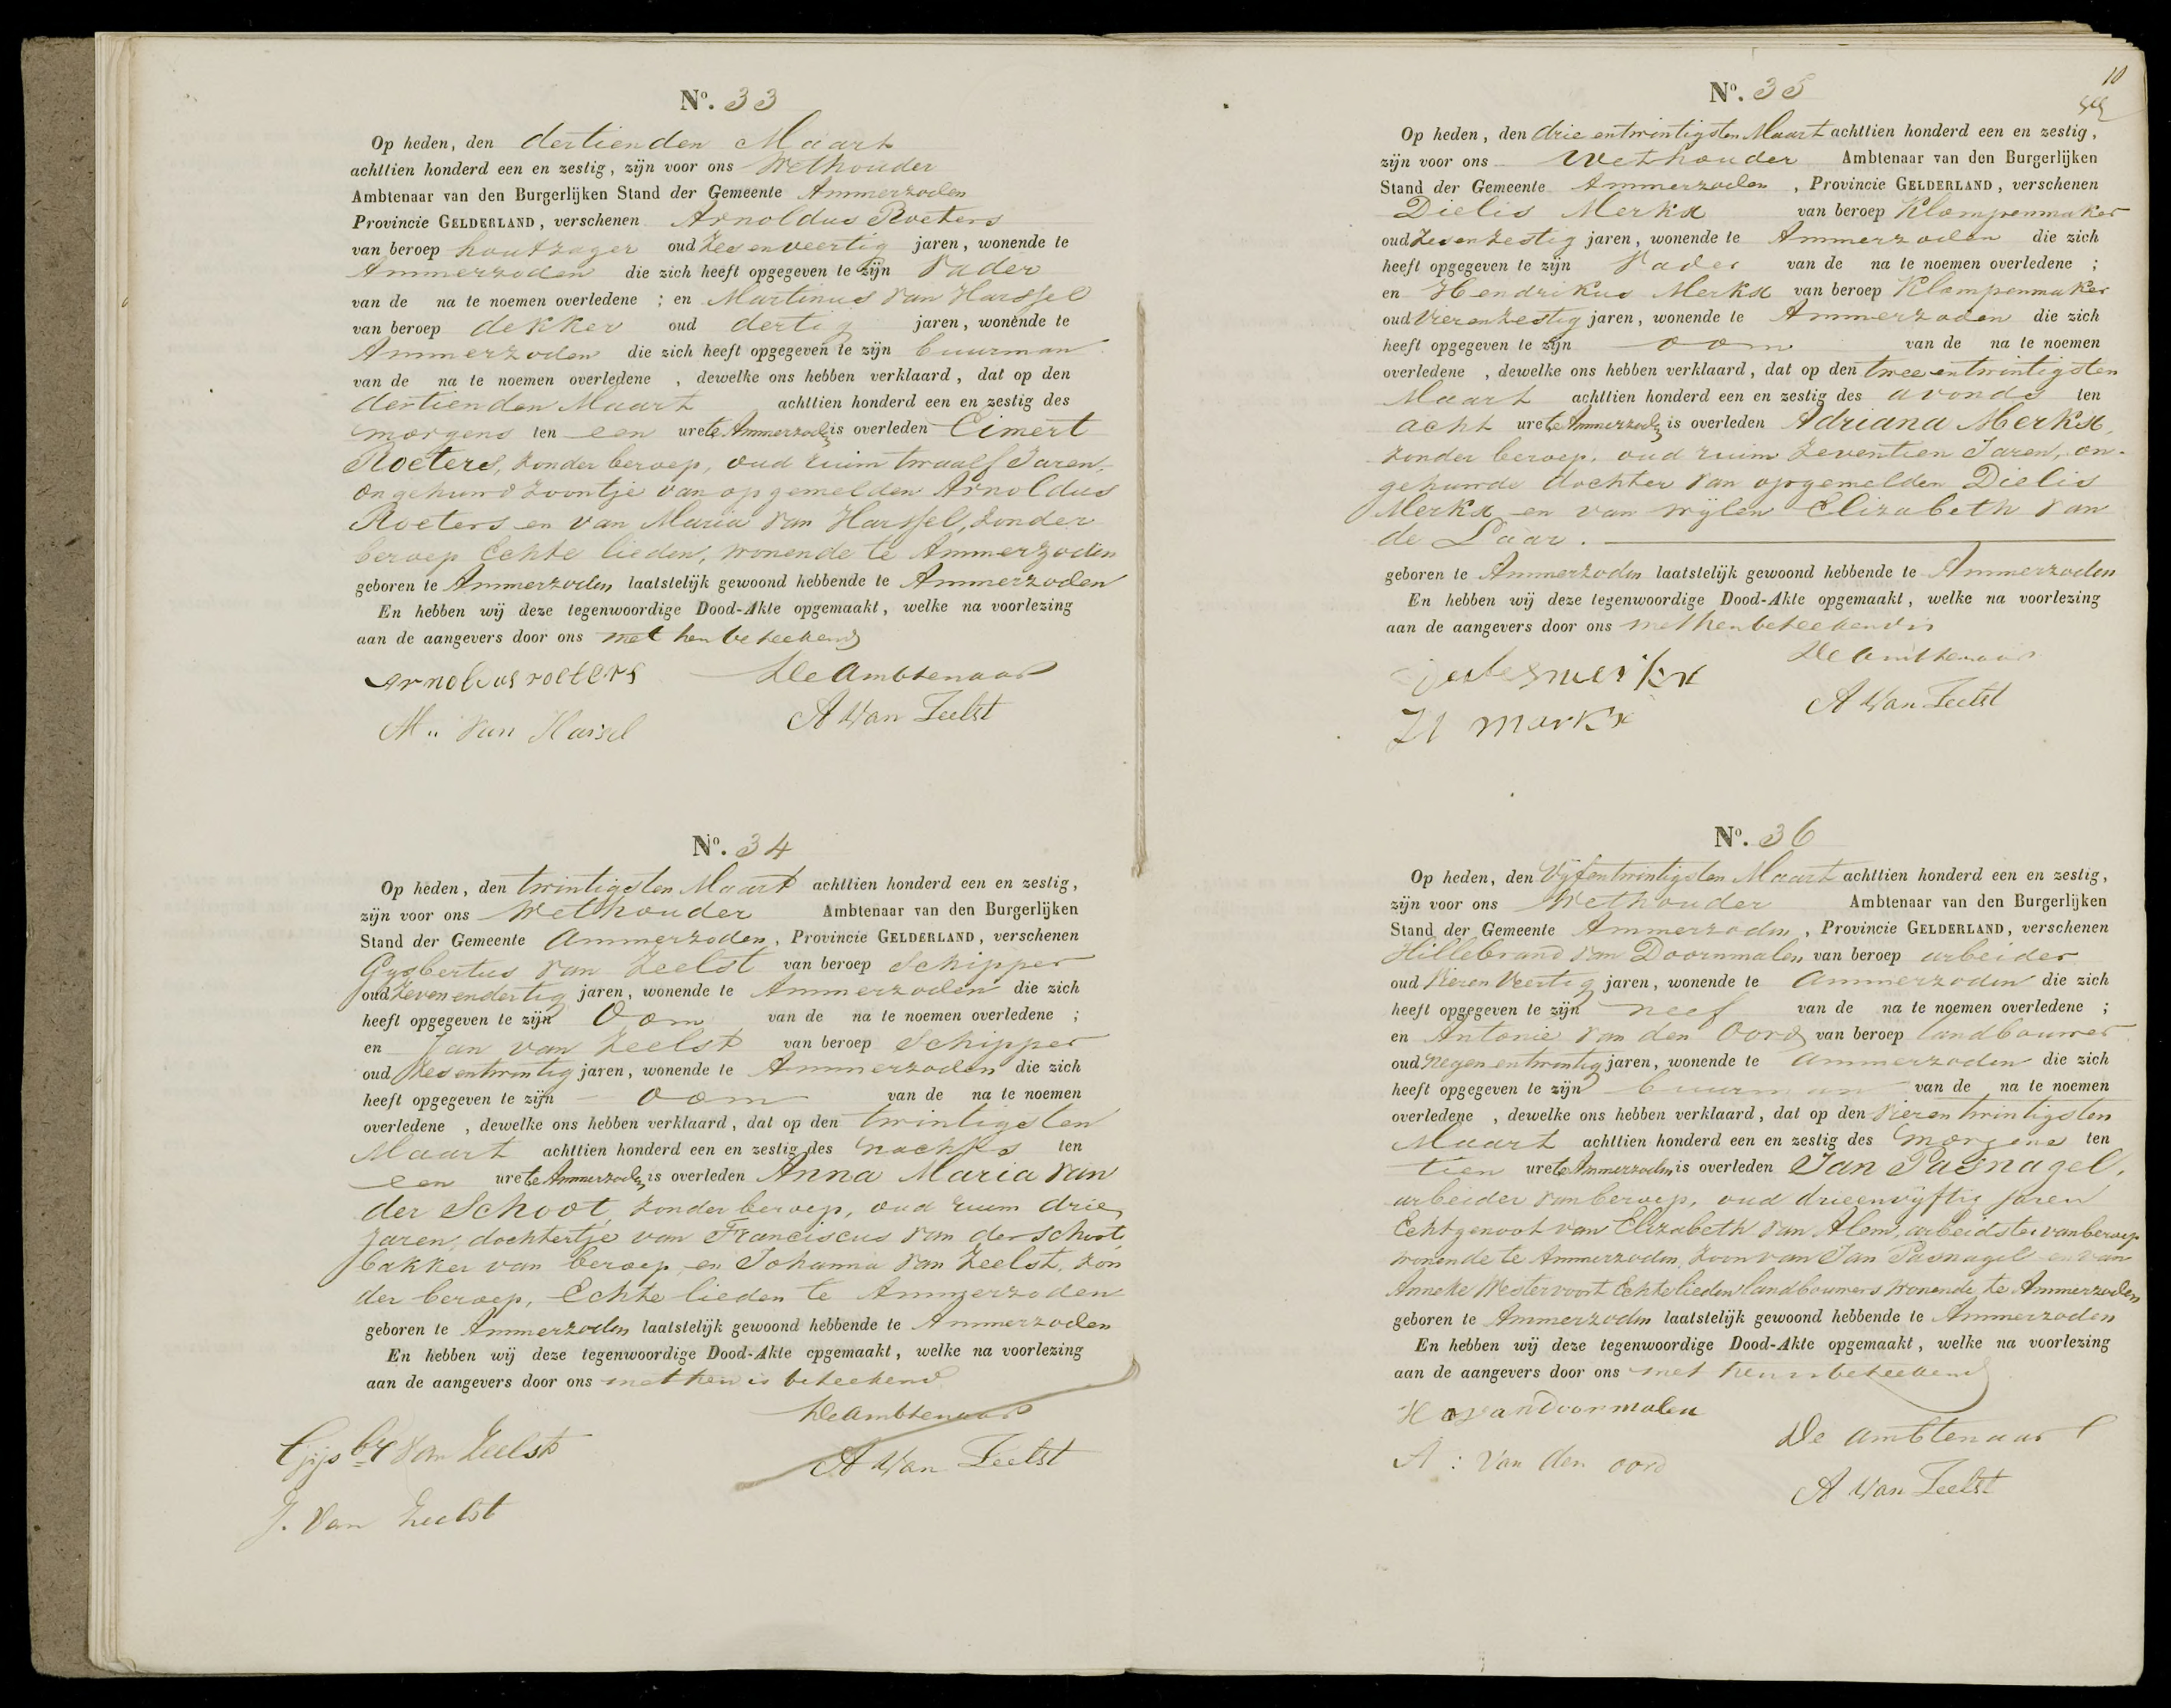 Nº. 33
Op heden, den dertienden Maart
achttien honderd een en zestig, zijn voor ons Wethouder
Ambtenaar van den Burgerlijken Stand der Gemeente Ammerzoden
Provincie GELDERLAND, verschenen Arnoldus Roeters
van beroep houtzager oud zesenveertig jaren, wonende te
Ammerzoden die zich heeft opgegeven te zijn Vader
van de na te noemen overledene ; en Martinus van Harssel
van beroep dekker oud dertig jaren, wonende te
Ammerzoden die zich heeft opgegeven te zijn buurman
van de na te noemen overledene , dewelke ons hebben verklaard, dat op den
dertienden Maart achttien honderd een en zestig des
morgens ten een ure te Ammerzoden is overleden Eimert
Roeters, zonder beroep, oud ruim twaalf Jaren,
ongehuwd zoontje van opgemelden Arnoldus
Roeters en van Maria van Harssel, zonder
beroep Echte lieden, wonende te Ammerzoden
geboren te Ammerzoden laatstelijk gewoond hebbende te Ammerzoden
En hebben wij deze tegenwoordige Dood-Akte opgemaakt, welke na voorlezing
aan de aangevers door ons met hen beteekend
Arnoldus roeters De Ambtenaar
M.. van Hassel A van Zeelst
Nº. 34
Op heden, den twintigsten Maart achttien honderd een en zestig,
zijn voor ons Wethouder Ambtenaar van den Burgerlijken
Stand der Gemeente Ammerzoden, Provincie GELDERLAND, verschenen
Gysbertus van Zeelst van beroep Schipper
oud Zevenendertig jaren, wonende te Ammerzoden die zich
heeft opgegeven te zijn Oom van de na te noemen overledene ;
en Jan van Zeelst van beroep Schipper
oud Zesentwintig jaren, wonende te Ammerzoden die zich
heeft opgegeven te zijn oom van de na te noemen
overledene , dewelke ons hebben verklaard, dat op den twintigsten
Maart achttien honderd een en zestig des nachts ten
een ure te Ammerzoden is overleden Anna Maria van
der Schoot, zonder beroep, oud ruim drie
jaren, dochtertje van Franciscus van der Schoot,
bakker van beroep en Johanna van Zeelst, zon
der beroep, Echte lieden te Ammerzoden
geboren te Ammerzoden laatstelijk gewoond hebbende te Ammerzoden
En hebben wij deze tegenwoordige Dood-Akte opgemaakt, welke na voorlezing
aan de aangevers door ons met hen is beteekend
De Ambtenaar
Gijsbt van Zeelst A van Zeelst
J. van Zeelst
10
Nº. 35
Op heden, den drie entwintigsten Maart achttien honderd een en zestig,
zijn voor ons Wethouder Ambtenaar van den Burgerlijken
Stand der Gemeente Ammerzoden, Provincie GELDERLAND, verschenen
Dielis Merkx van beroep Klompenmaker
oud Zesenzestig jaren, wonende te Ammerzoden die zich
heeft opgegeven te zijn Vader van de na te noemen overledene ;
en Hendrikus Merkx van beroep Klompenmaker
oud Vierenzestig jaren, wonende te Ammerzoden die zich
heeft opgegeven te zijn oom van de na te noemen
overledene , dewelke ons hebben verklaard, dat op den twee entwintigsten
Maart achttien honderd een en zestig des avonds ten
acht ure te Ammerzoden is overleden Adriana Merkx,
zonder beroep, oud ruim zeventien Jaren, on-
gehuwde dochter van opgemelden Dielis
Merkx en van wijlen Elizabeth van
de Laar.
geboren te Ammerzoden laatstelijk gewoond hebbende te Ammerzoden
En hebben wij deze tegenwoordige Dood-Akte opgemaakt, welke na voorlezing
aan de aangevers door ons met hen beteekend is
De ambtenaar
A van Zeelst
H merkx
Nº. 36
Op heden, den Vijfentwintigsten Maart achttien honderd een en zestig,
zijn voor ons Wethouder Ambtenaar van den Burgerlijken
Stand der Gemeente Ammerzoden, Provincie GELDERLAND, verschenen
Hillebrand van Doornmalen van beroep arbeider
oud Vieren Veertig jaren, wonende te Ammerzoden die zich
heeft opgegeven te zijn neef van de na te noemen overledene ;
en Antonie van den Oord van beroep landbouwer
oud Negen entwintig jaren, wonende te Ammerzoden die zich
heeft opgegeven te zijn buurman van de na te noemen
overledene , dewelke ons hebben verklaard, dat op den Vieren twintigsten
Maart achttien honderd een en zestig des morgens ten
tien ure te Ammerzoden is overleden Jan Pasnagel,
arbeider van beroep, oud drieenvijftig jaren
Echtgenoot van Elizabeth van Alem, arbeidster van beroep
wonende te Ammerzoden, zoon van Jan Pasnagel en van
Anneke Westervoort Echtelieden landbouwers wonende te Ammerzoden
geboren te Ammerzoden laatstelijk gewoond hebbende te Ammerzoden
En hebben wij deze tegenwoordige Dood-Akte opgemaakt, welke na voorlezing
aan de aangevers door ons met hen is beteekend
H van Doormalen
De ambtenaar
A : van den oord
A van Zeelst